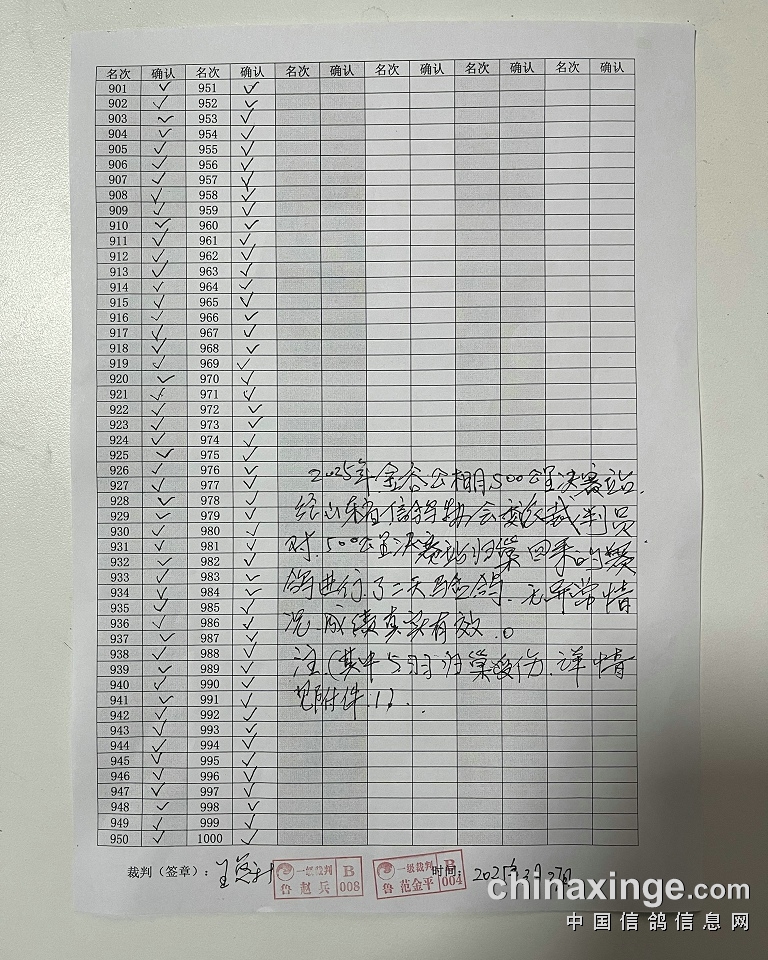 名次 确认 名次 确认 名次 确认 名次 确认 名次 确认 名次 确认
901 ✓ 951 ✓
902 ✓ 952 ✓
903 ✓ 953 ✓
904 ✓ 954 ✓
905 ✓ 955 ✓
906 ✓ 956 ✓
907 ✓ 957 ✓
908 ✓ 958 ✓
909 ✓ 959 ✓
910 ✓ 960 ✓
911 ✓ 961 ✓
912 ✓ 962 ✓
913 ✓ 963 ✓
914 ✓ 964 ✓
915 ✓ 965 ✓
916 ✓ 966 ✓
917 ✓ 967 ✓
918 ✓ 968 ✓
919 ✓ 969 ✓
920 ✓ 970 ✓
921 ✓ 971 ✓
922 ✓ 972 ✓
923 ✓ 973 ✓
924 ✓ 974 ✓
925 ✓ 975 ✓
926 ✓ 976 ✓
927 ✓ 977 ✓
928 ✓ 978 ✓
929 ✓ 979 ✓
930 ✓ 980 ✓
931 ✓ 981 ✓
932 ✓ 982 ✓
933 ✓ 983 ✓
934 ✓ 984 ✓
935 ✓ 985 ✓
936 ✓ 986 ✓
937 ✓ 987 ✓
938 ✓ 988 ✓
939 ✓ 989 ✓
940 ✓ 990 ✓
941 ✓ 991 ✓
942 ✓ 992 ✓
943 ✓ 993 ✓
944 ✓ 994 ✓
945 ✓ 995 ✓
946 ✓ 996 ✓
947 ✓ 997 ✓
948 ✓ 998 ✓
949 ✓ 999 ✓
950 ✓ 1000 ✓
2025年金谷公棚500公里决赛站.
经山东省信鸽协会委派裁判员
对.500公里决赛站归巢回来的赛
鸽进行了二天验鸽.无异常情
况.成绩真实有效.。
注.(其中5羽归巢受伤.详情
见附件.1).
裁判（签章）： 一级裁判 鲁 赵兵 B 008 一级裁判 鲁 范金平 B 004 时间： 2025年3月27日
chinaxinge.com
中国信鸽信息网